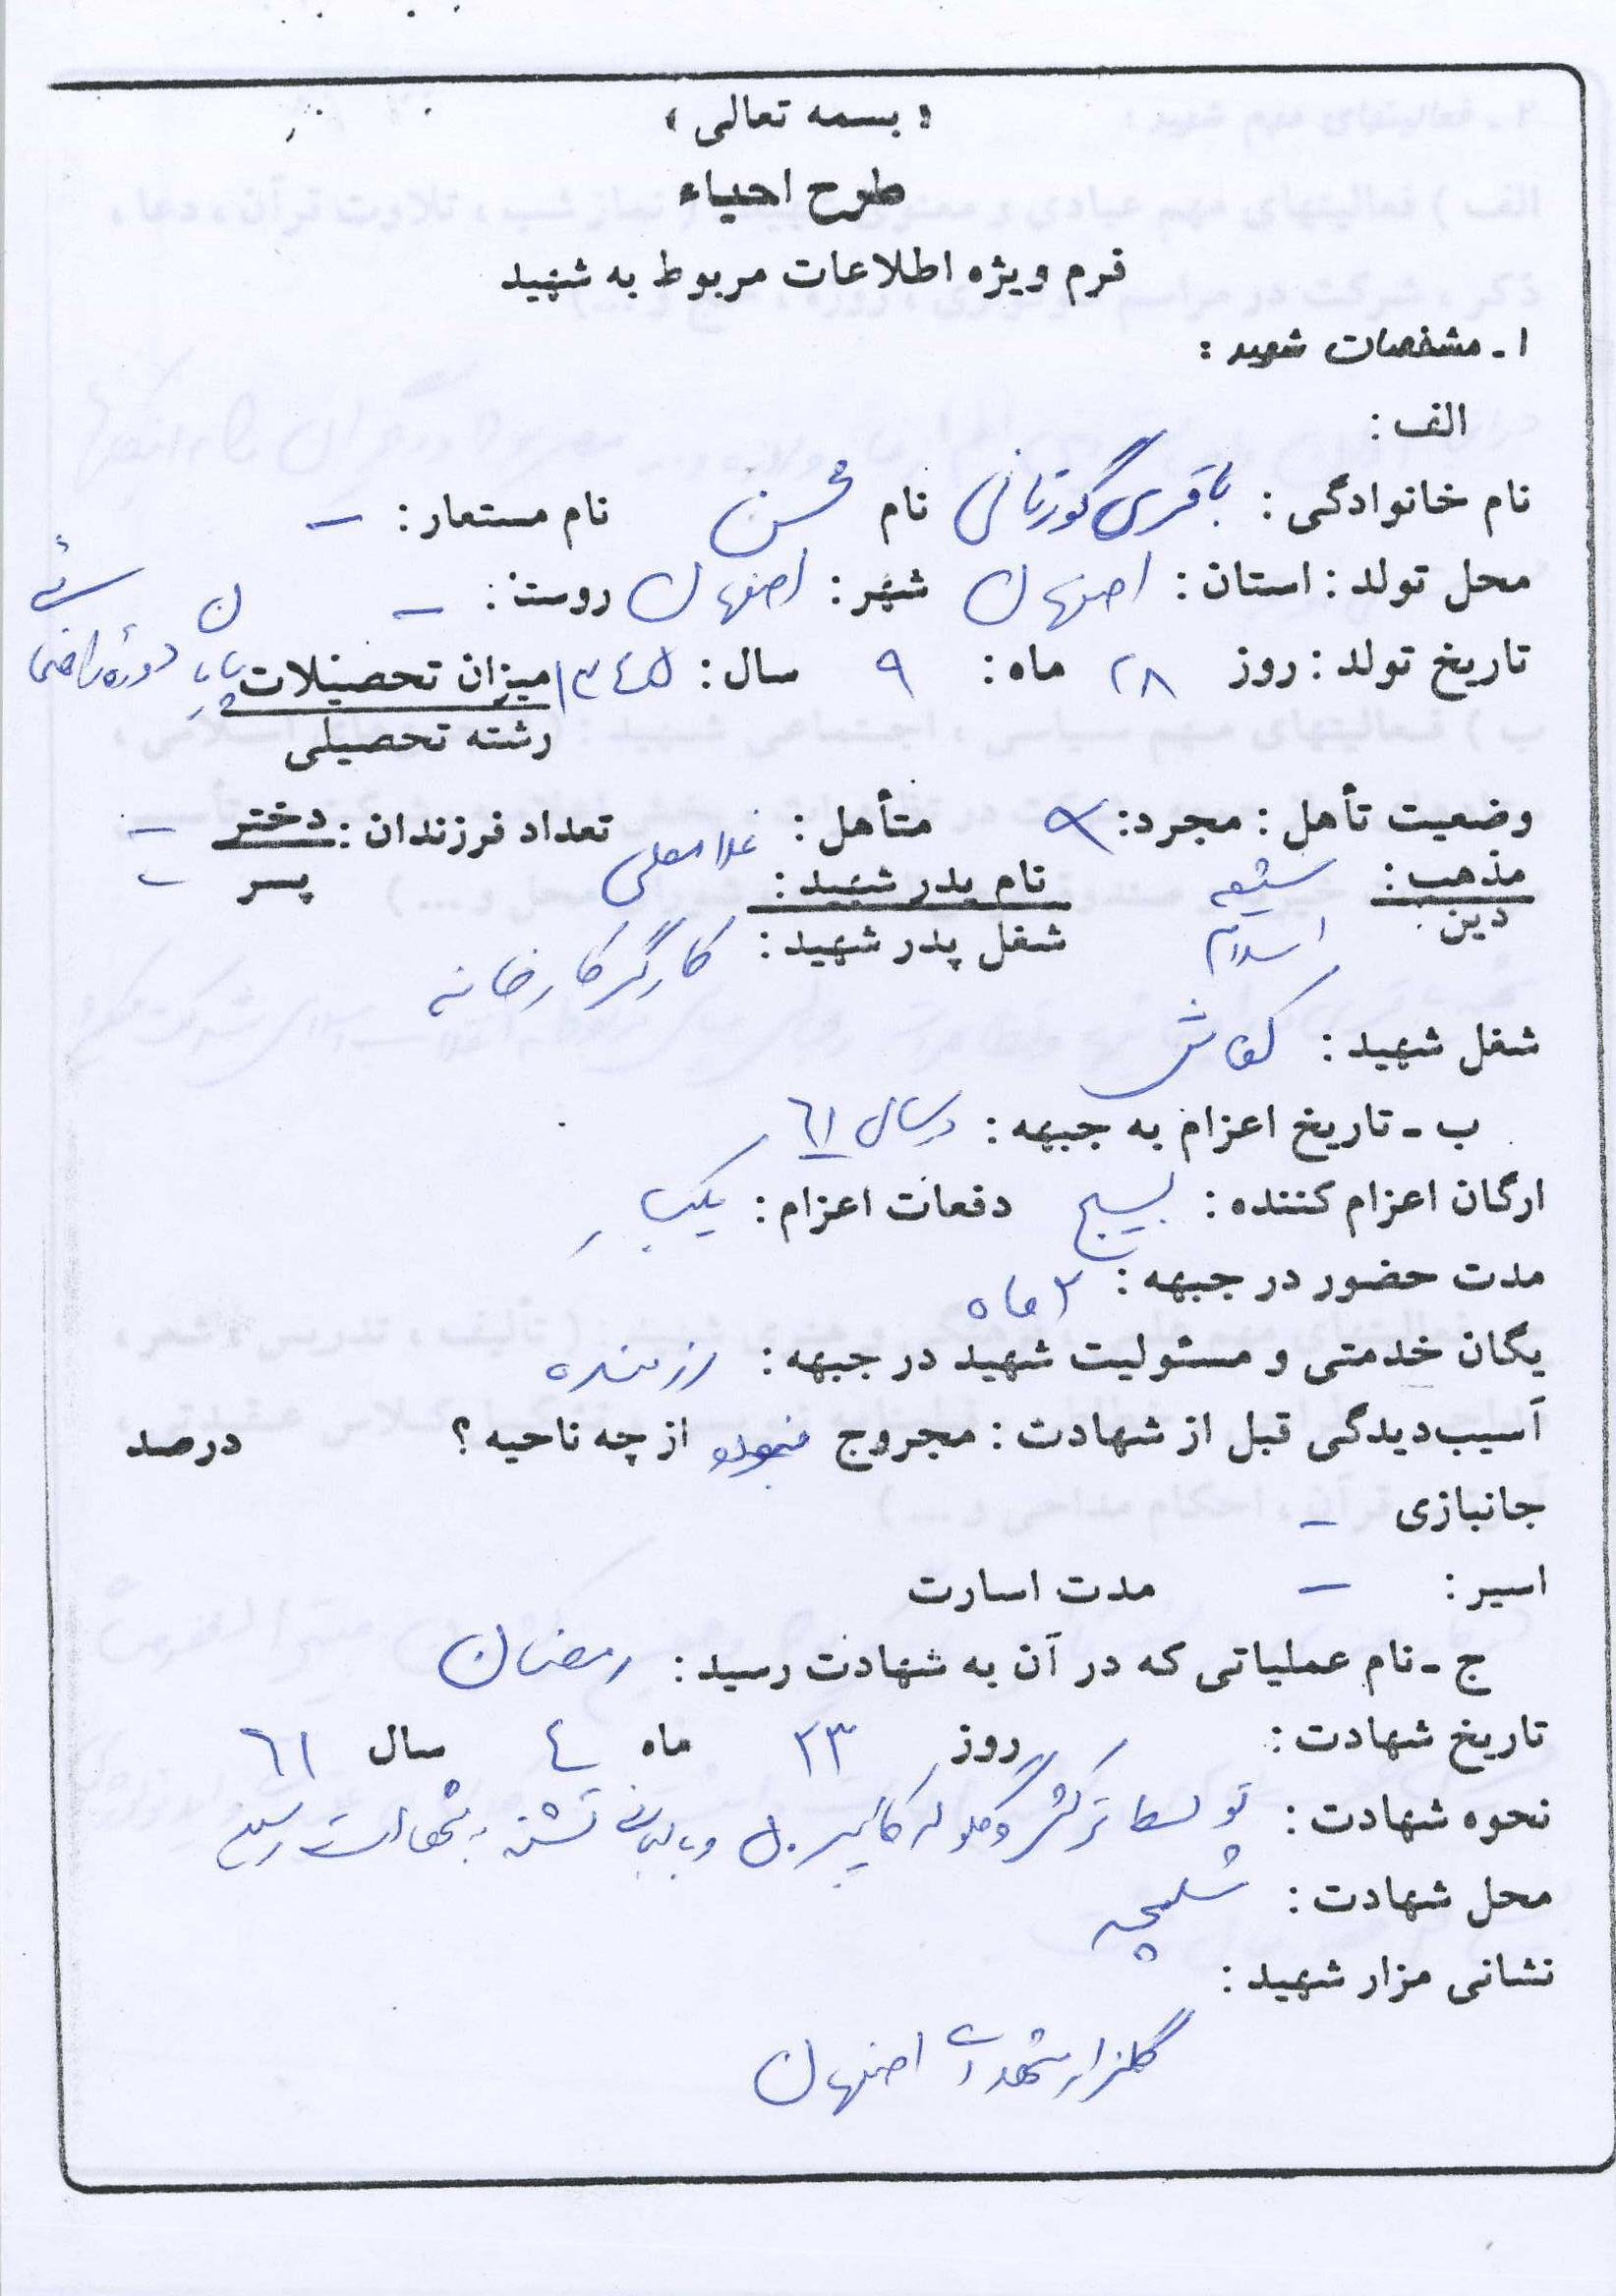 « بسمه تعالی »
طرح احیاء
فرم ویژه اطلاعات مربوط به شهید
۱ ـ مشخصات شهید :
الف :
نام خانوادگی : باقری گورتانی نام محسن نام مستعار : –
محل تولد : استان : اصفهان شهر : اصفهان روستا : –
تاریخ تولد : روز ۲۸ ماه : ۹ سال : ۱۳۴۵ میزان تحصیلات پایان دوره راهنمائی
رشته تحصیلی
وضعیت تأهل : مجرد : متأهل : تعداد فرزندان : دختر –
پسر –
مذهب : شیعه نام پدر شهید : غلامعلی
دین اسلام شغل پدر شهید : کارگر کارخانه
شغل شهید : کفاش
ب ـ تاریخ اعزام به جبهه : در سال ۶۱
ارگان اعزام کننده : بسیج دفعات اعزام : یکبار
مدت حضور در جبهه : ماه
یگان خدمتی و مسئولیت شهید در جبهه : رزمنده
آسیب‌دیدگی قبل از شهادت : مجروح نبوده از چه ناحیه ؟ درصد
جانبازی –
اسیر : – مدت اسارت
ج ـ نام عملیاتی که در آن به شهادت رسید : رمضان
تاریخ شهادت : روز ۲۳ ماه ٤ سال ٦١
نحوه شهادت : توسط ترکش و گلوله کالیبر ۵۰ و با لبانی تشنه به شهادت رسید
محل شهادت : شلمچه
نشانی مزار شهید :
گلزار شهدای اصفهان